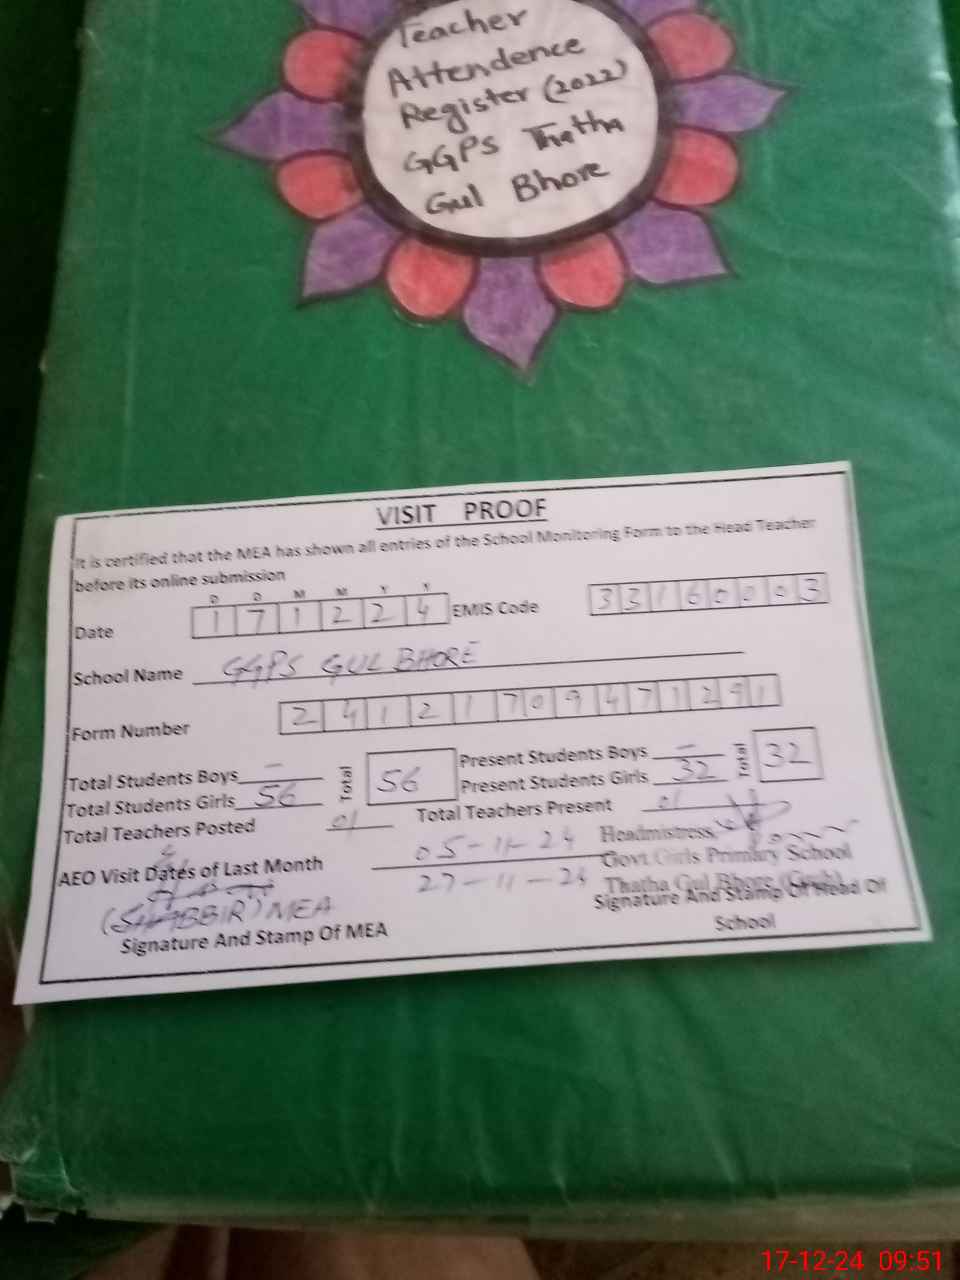 Teacher
Attendence
Register (2022)
GGPS Thatha
Gul Bhore
VISIT PROOF
It is certified that the MEA has shown all entries of the School Monitoring Form to the Head Teacher
before its online submission
D D M M Y Y
Date 1 7 1 2 2 4 EMIS Code 3 3 1 6 0 0 0 3
School Name GGPS GUL BHORE
Form Number 2 4 1 2 1 7 0 9 4 7 1 2 9 1
Total Students Boys - Total 56 Present Students Boys - Total 32
Total Students Girls 56 Present Students Girls 32
Total Teachers Posted 01 Total Teachers Present 01
AEO Visit Dates of Last Month 05-11-24
27-11-24
Headmistress,
Govt Girls Primary School
Thatha Gul Bhore
(SHABBIR) MEA
Signature And Stamp Of MEA
Signature And Stamp Of Head Of
School
17-12-24 09:51